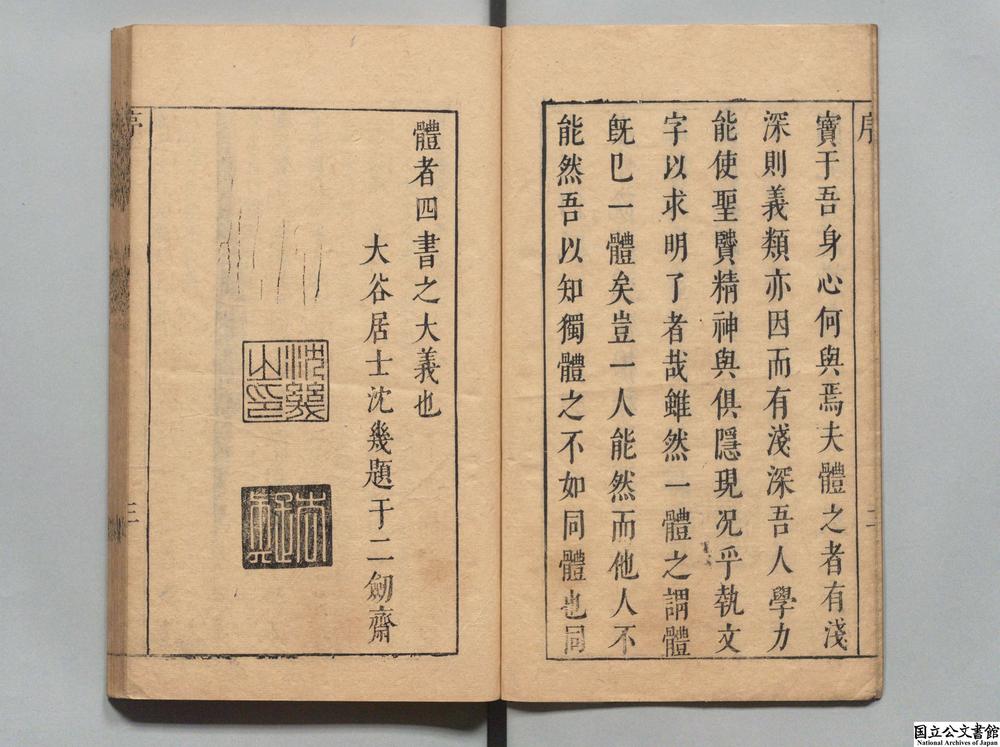 序
寶于吾身心何與焉夫體之者有淺
深則義類亦因而有淺深吾人學力
能使聖賢精神與俱隱現況乎執文
字以求明了者哉雖然一體之謂體
旣已一體矣豈一人能然而他人不
能然吾以知獨體之不如同體也同
體者四書之大義也
大谷居士沈幾題于二劒齋
沈幾
之印
序
三
国立公文書館
National Archives of Japan